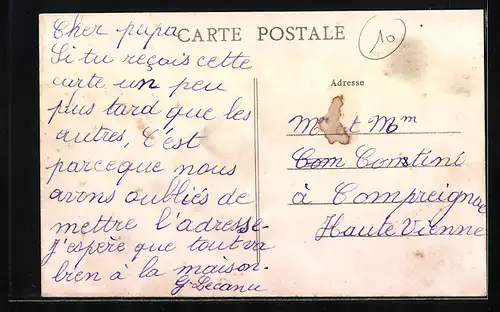 CARTE POSTALE
10
Adresse
Cher papa
Si tu reçois cette
carte un peu
plus tard que les
autres, c'est
parceque nous
avons oubliés de
mettre l'adresse-
j'espère que tout va
bien à la maison.
G Lecanu
Mr et Mm
Com Constini
à Compreignac
Haute Vienne